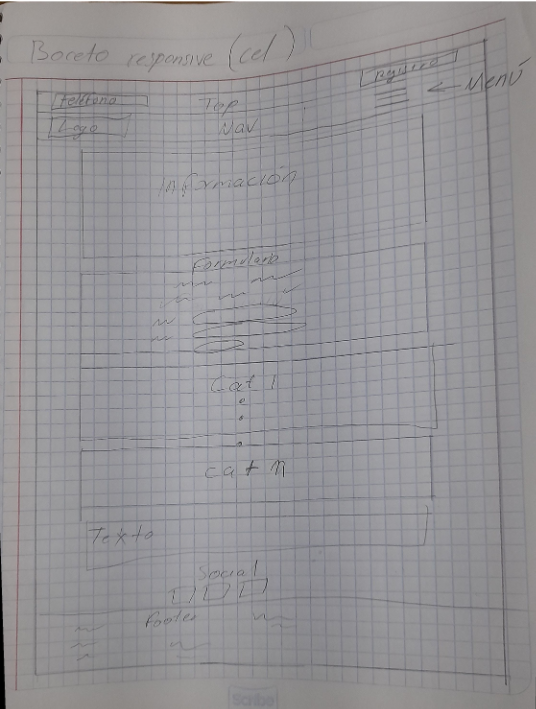 Boceto responsive (cel)
Teléfono Top registro
← Menú
Logo Nav
Información
Formulario
Cat 1
cat n
Texto
Social
footer
Scribe